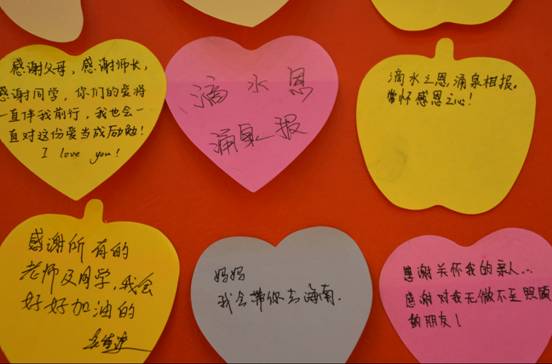 感谢父母，感谢师长，
感谢同学，你们的爱将
一直伴我前行，我也会一
直对这份爱当成励勉！
I love you!
滴水恩
涌泉报
滴水之恩涌泉相报。
常怀感恩之心！
感谢所有的
老师及同学，我会
好好加油的
妈妈
我会带你去海南.
感谢关怀我的亲人..
感谢对我无微不至照顾
的朋友！